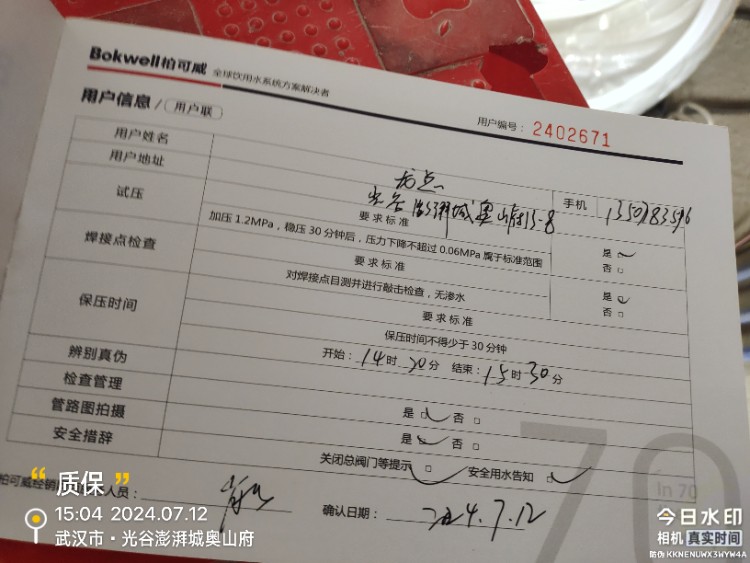 Bokwell柏可威 全球饮用水系统方案解决者
用户信息/用户联 用户编号：2402671
用户姓名 手机
用户地址 光谷澎湃城奥山府13-8
试压 要求标准
加压 1.2MPa，稳压 30 分钟后，压力下降不超过 0.06MPa 属于标准范围 是 否
焊接点检查 要求标准
对焊接点目测并进行敲击检查，无渗水 是 否
保压时间 要求标准
保压时间不得少于 30 分钟
开始：14时20分 结束：15时30分
辨别真伪 是 否
检查管理 是 否
管路图拍摄
安全措辞 关闭总阀门等提示 安全用水告知
柏可威经销 人员：
确认日期：2024.7.12
70
In 70
“质保”
15:04 2024.07.12
武汉市·光谷澎湃城奥山府
今日水印
相机 真实时间
防伪 KKNENUWX3WYW4A